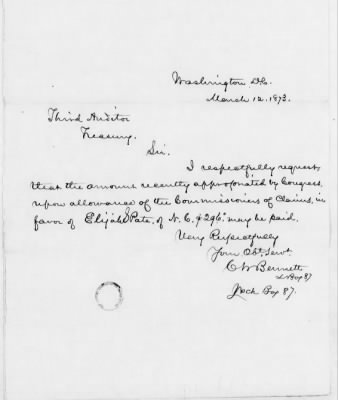 Washington D.C.
March 12, 1873.
Third Auditor
Treasury.
Sir.
I respectfully request,
that the amount recently appropriated by Congress,
upon allowance of the Commissioners of Claims, in
favor of Elijah Pate, of N.C. $296. may be paid.
Very Respectfully
Your Obt. Servt.
C W Bennett
L Box 87
Lock Box 87.